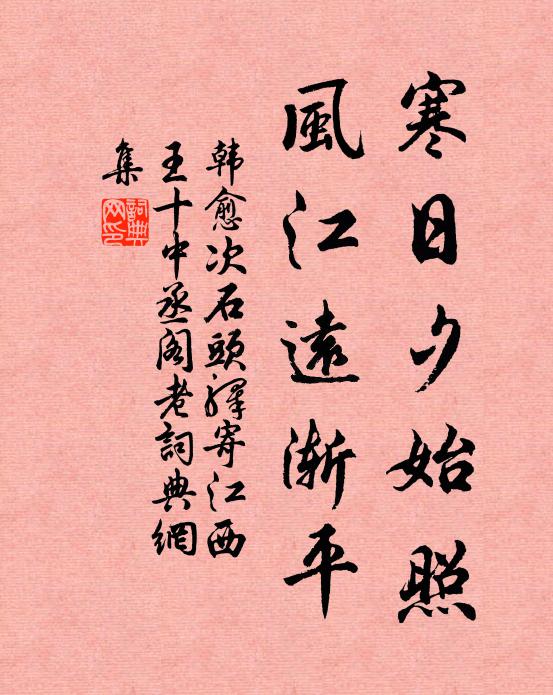 寒日夕始照
風江遠漸平
韩愈次石頭驛寄江西
王十中丞阁老詞典網
集
詞典
网印